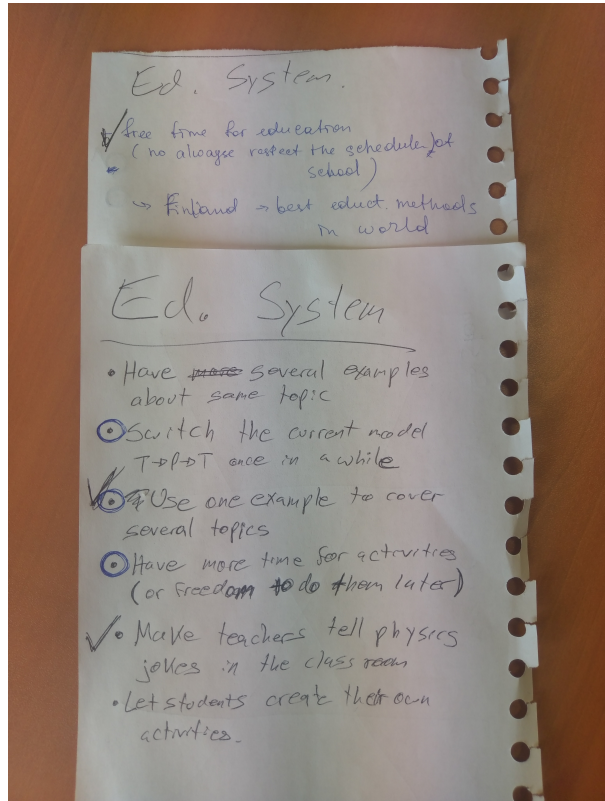 Ed. System.
free time for education
(no alwayse respect the schedule of
school)
↳ Finland → best educt. methods
in world
Ed. System
• Have more several examples
about same topic
• Switch the current model
T→P→T once in a while
• Use one example to cover
several topics
• Have more time for activities
(or freedom to do them later)
• Make teachers tell physics
jokes in the classroom
• Let students create their own
activities.